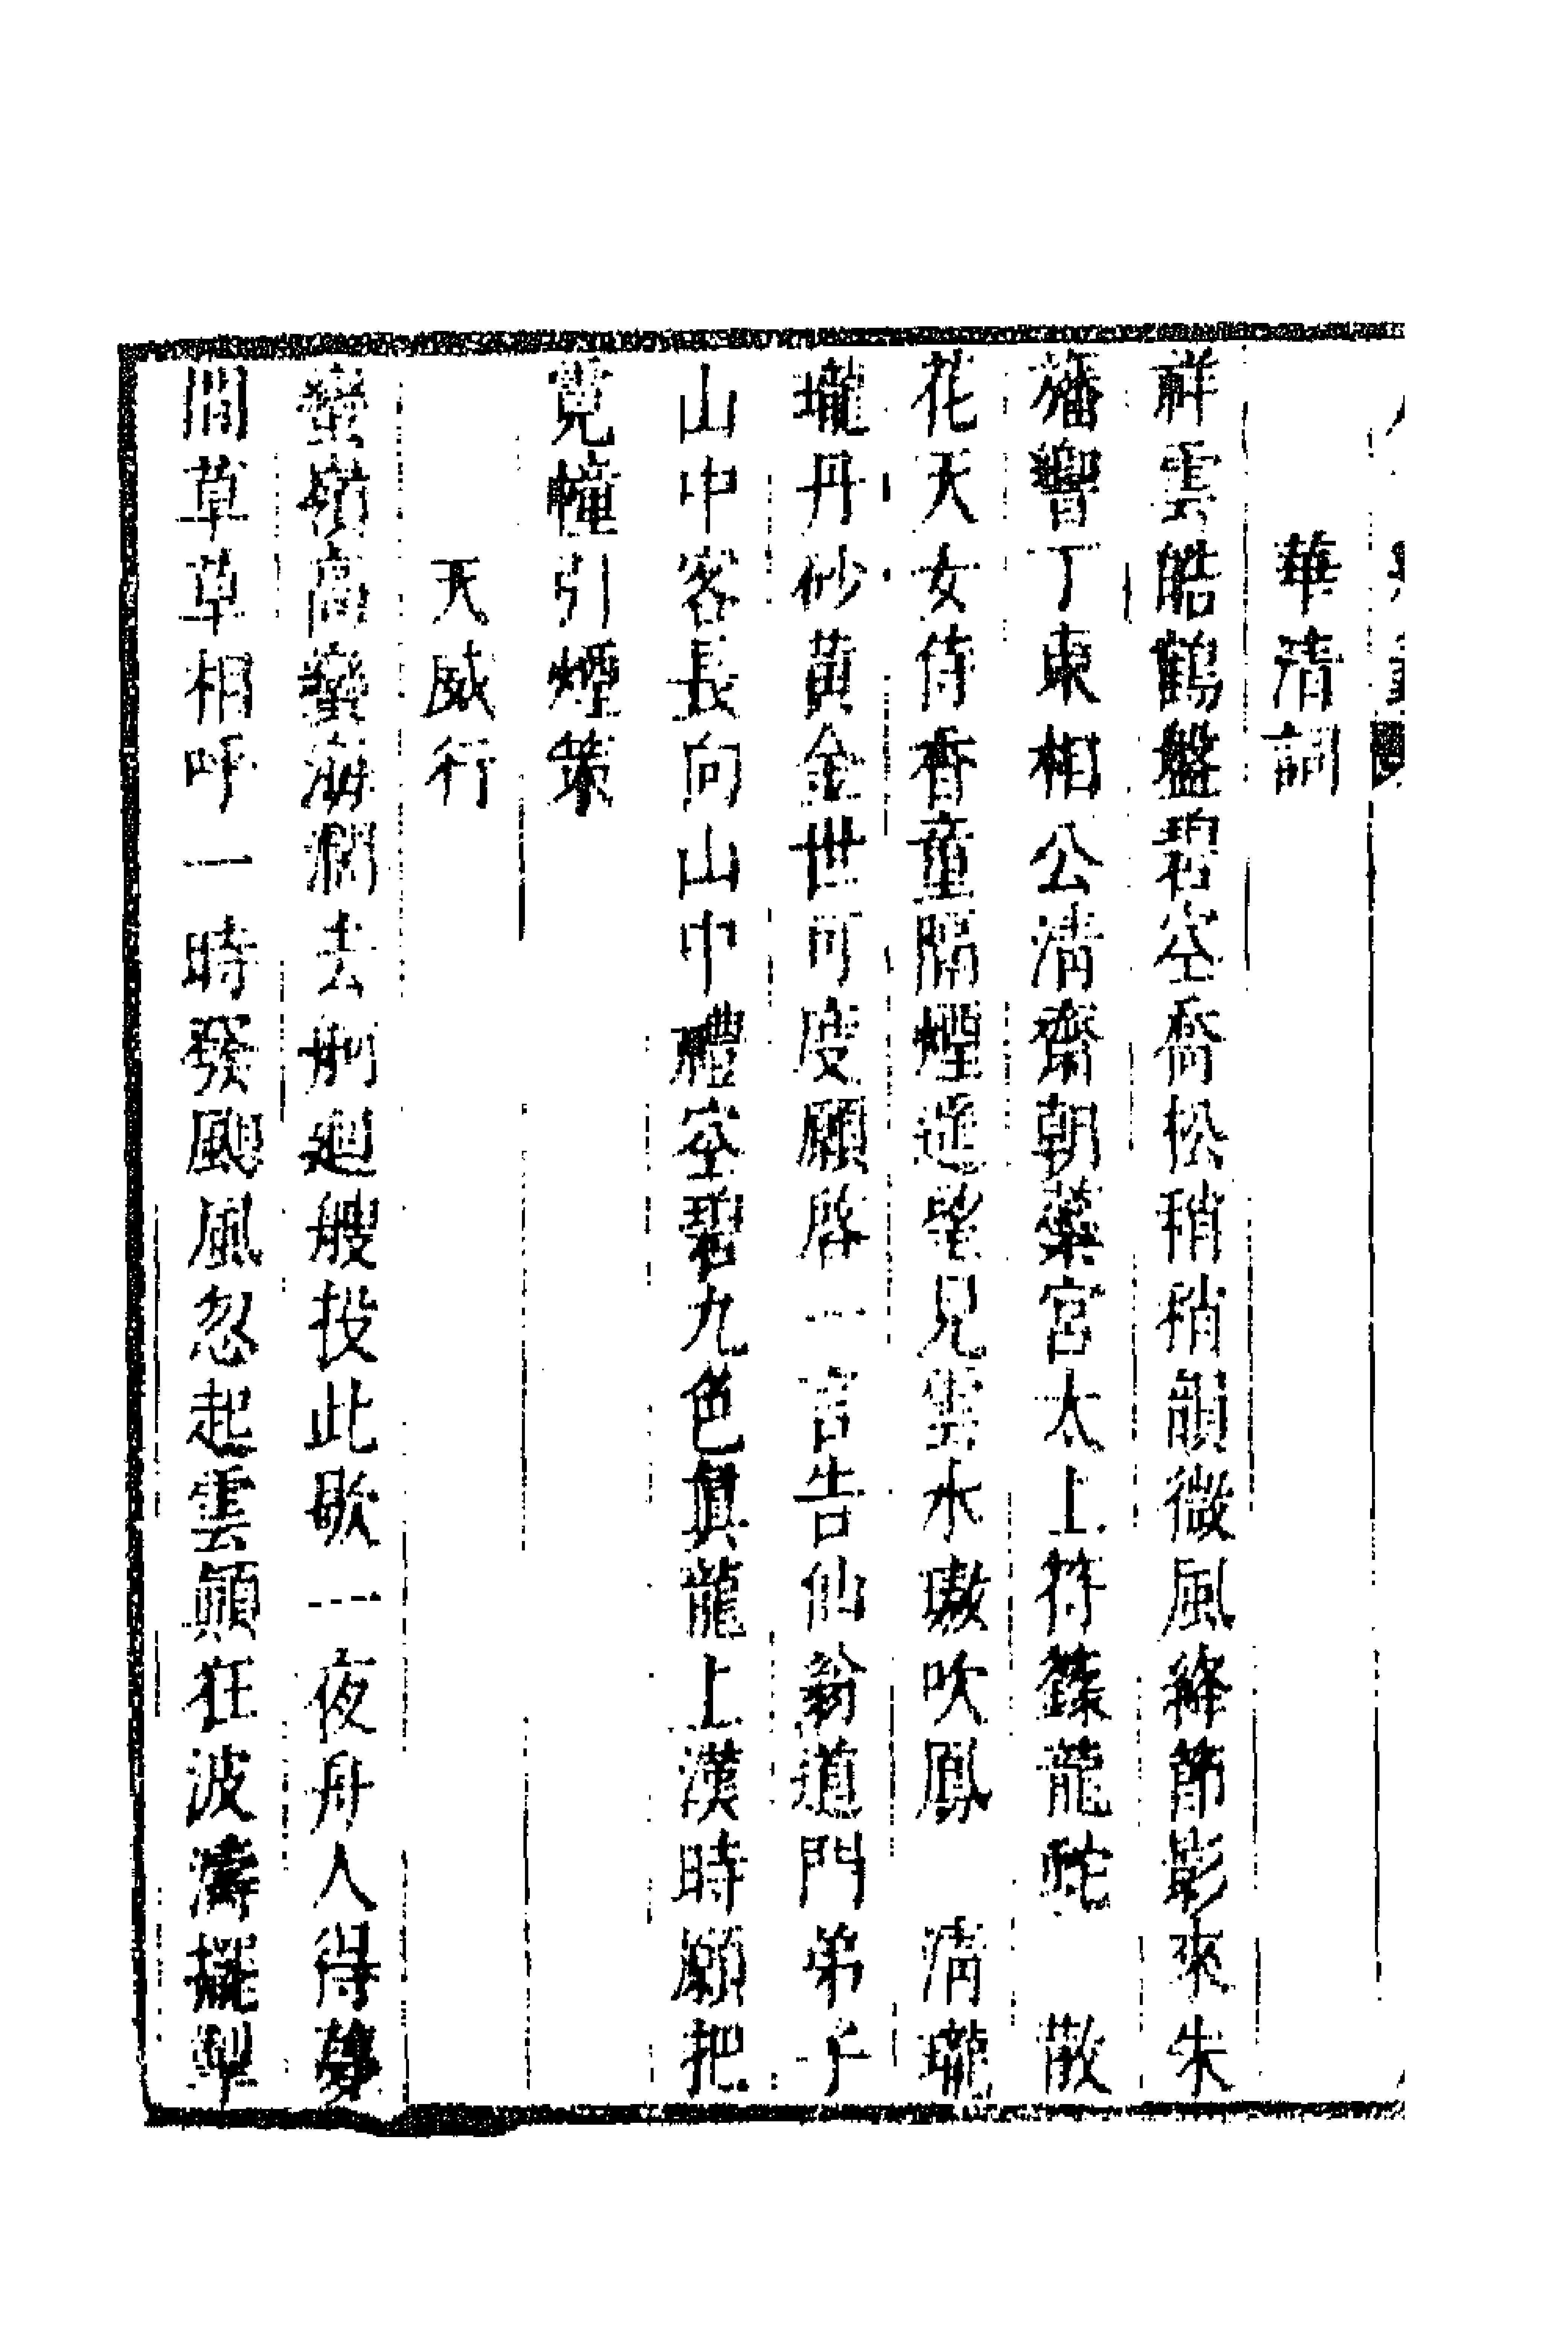 華清詞
祥雲皓鶴盤碧空喬松稍稍韻微風絳節影來朱
旛響丁東相公清齋朝蘂宮太上符籙龍蛇　散
花天女侍香童隔煙遥望見雲水璈吹鳳　清瓏
瓏丹砂黃金世可度願啓一言告仙翁道門弟子
山中客長向山中禮空碧九色眞龍上漢時願把
霓幢引煙策
天威行
蠻嶺高蠻海濶去舸迴艘投此歇一夜舟人得夢
間草草相呼一時發颶風忽起雲顛狂波濤擺掣